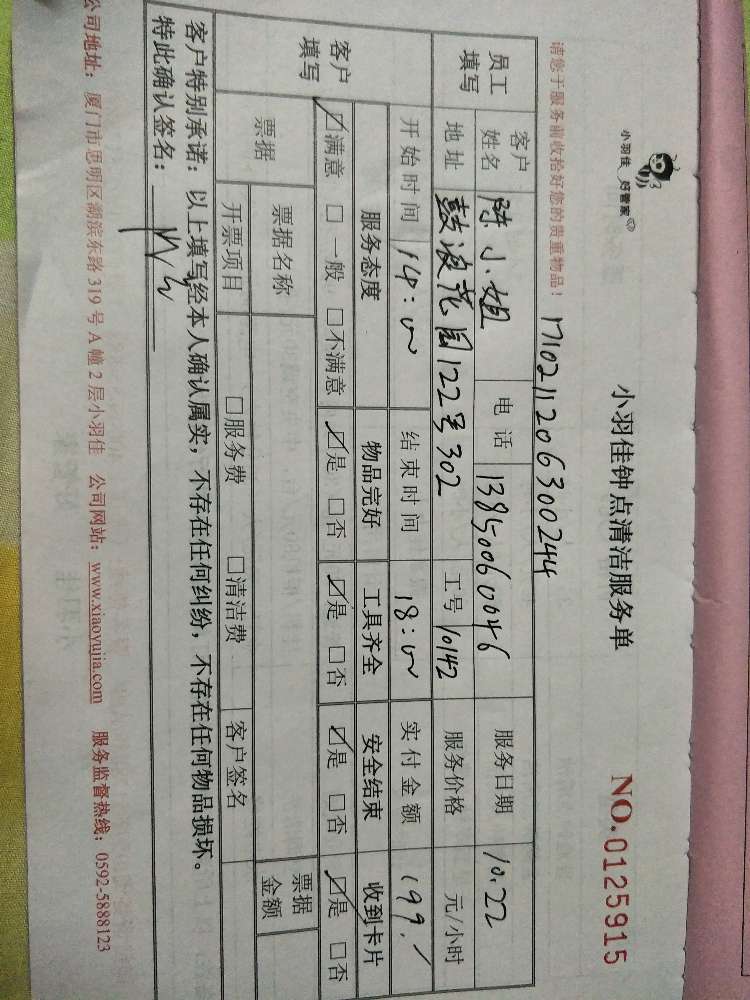 小羽佳 好管家
小羽佳钟点清洁服务单
NO.0125915
请您于服务前收拾好您的贵重物品！
1710211206300244
员工填写
客户姓名 陈小姐 电话 13850060046 服务日期 10.22
地址 鼓浪花园122号302 工号 10142 服务价格 元/小时
客户填写
开始时间 14:00 结束时间 18:00 实付金额 199.
服务态度 物品完好 工具齐全 安全结束 收到卡片
☑满意 □一般 □不满意 ☑是 □否 ☑是 □否 ☑是 □否 ☑是 □否
票据 票据名称 票据金额
开票项目 □服务费 □清洁费 客户签名
客户特别承诺：以上填写经本人确认属实，不存在任何纠纷，不存在任何物品损坏。
特此确认签名：
公司地址：厦门市思明区湖滨东路319号A幢2层小羽佳 公司网站：www.xiaoyujia.com 服务监督热线：0592-5888123